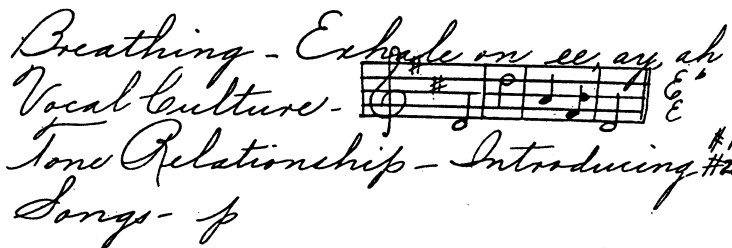 Breathing - Exhale on ee, ay, ah
Vocal Culture - E♭
E
Tone Relationship - Introducing #1
#2
Songs - p